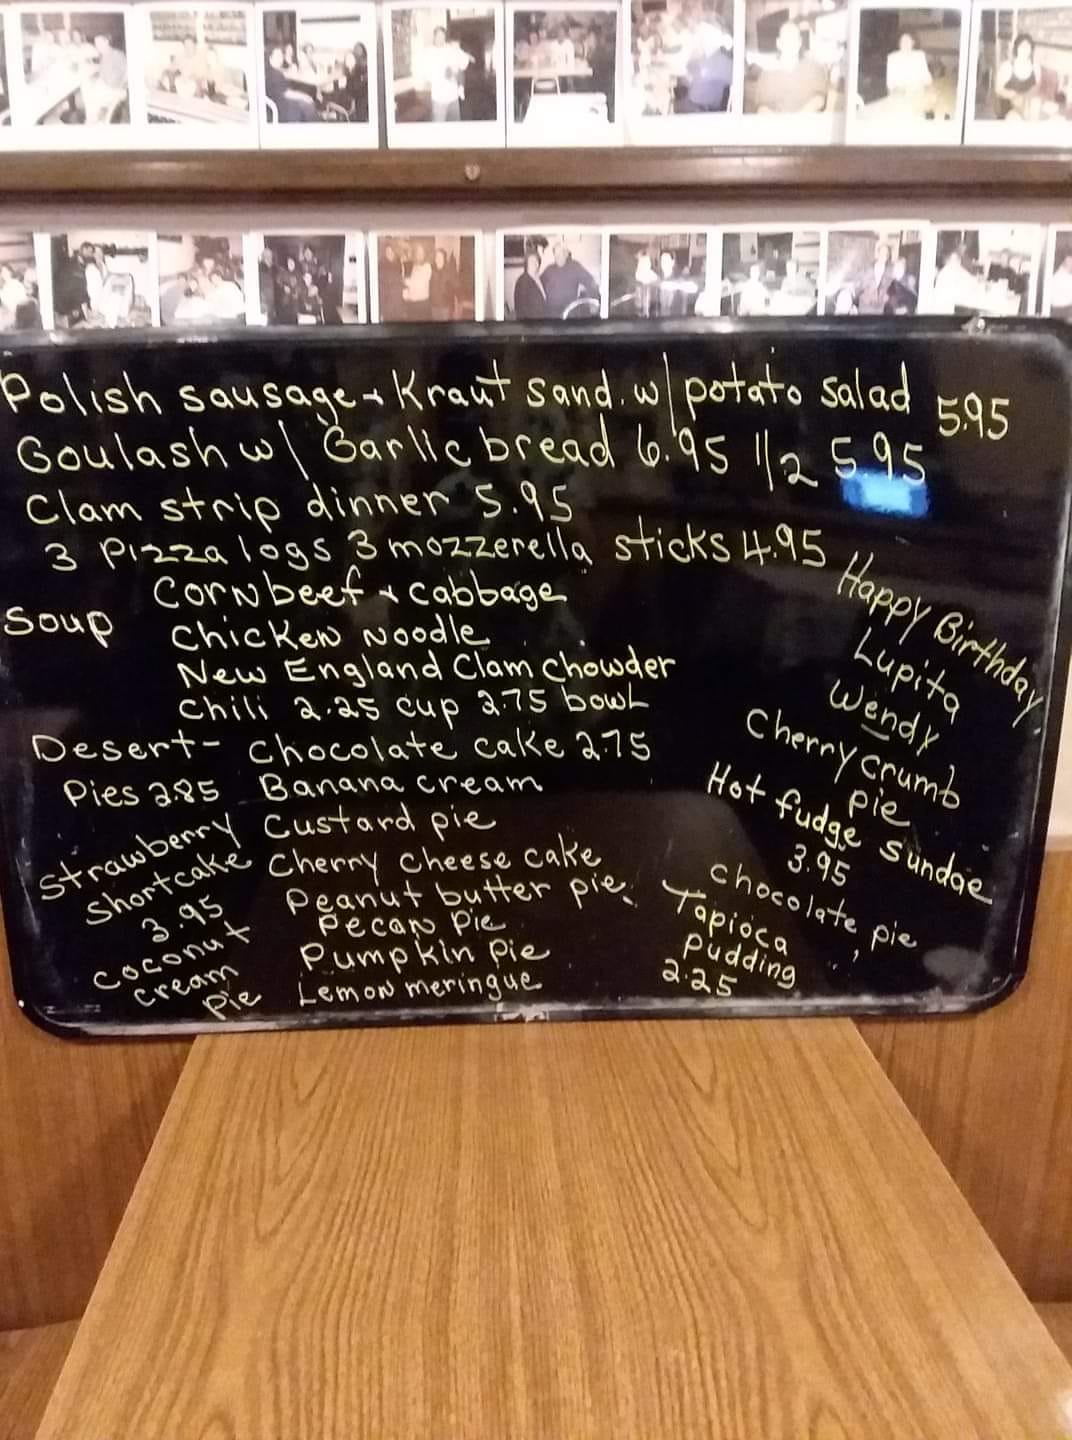 Polish sausage + Kraut sand. w/ potato salad 5.95
Goulash w/ Garlic bread 6.95 1/2 5.95
Clam strip dinner 5.95
3 Pizza logs 3 mozzerella sticks 4.95
Soup Corn beef + cabbage
Chicken Noodle
New England Clam Chowder
Chili 2.25 cup 2.75 bowl
Desert- Chocolate cake 2.75
Pies 2.85 Banana cream
Custard pie
Cherry Cheese cake
Peanut butter pie.
Pecan Pie
Pumpkin Pie
Lemon meringue
Strawberry
Shortcake
3.95
Coconut
Cream
Pie
Happy Birthday
Lupita
Wendy
Cherry crumb
pie
Hot fudge sundae
3.95
Chocolate pie
Tapioca
Pudding
2.25